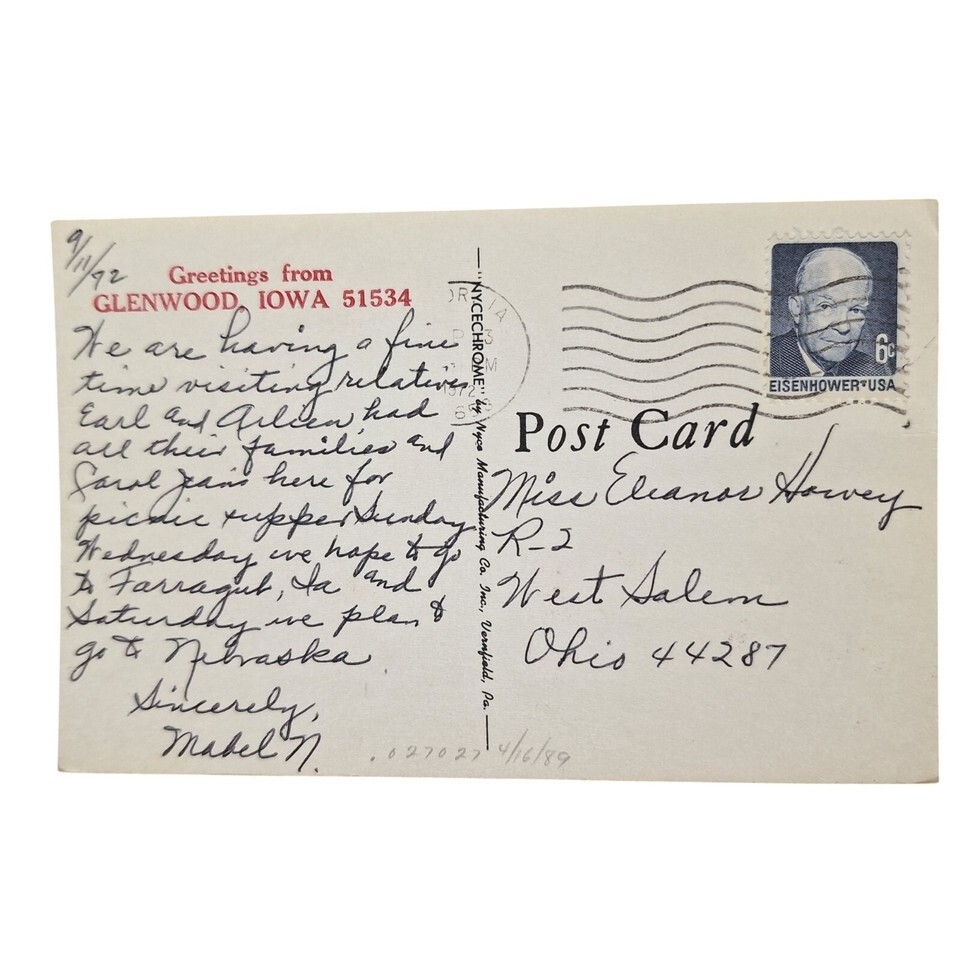 9/11/72
Greetings from
GLENWOOD, IOWA 51534
We are having a fine
time visiting relatives
Earl and Arleen had
all their families and
Carol Jean's here for
picnic supper Sunday
Wednesday we hope to go
to Farragut, Ia and
Saturday we plan to
go to Nebraska
Sincerely,
Mabel N.
"NYCECHROME" by Nyce Manufacturing Co. Inc., Vernfield, Pa.
1972
6c
EISENHOWER·USA
Post Card
Miss Eleanor Howey
R-2
West Salem
Ohio 44287
.027027 4/16/89